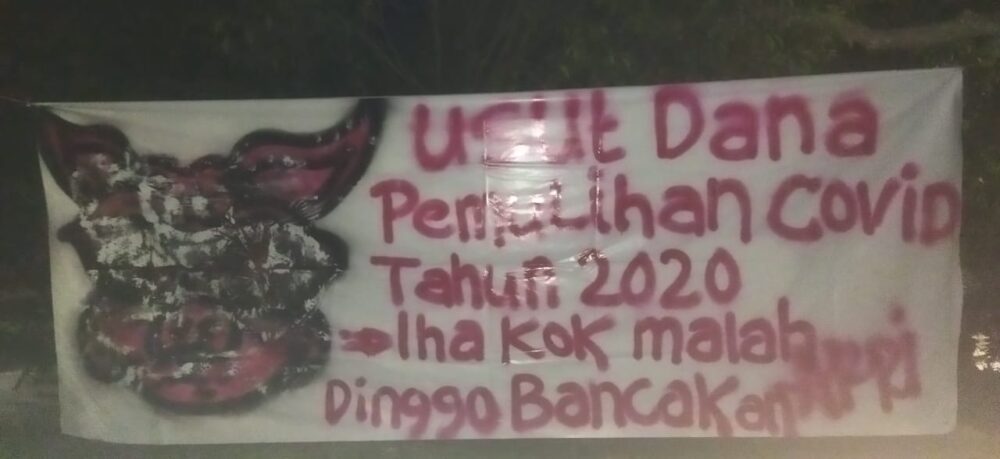 usut Dana
Pemulihan Covid
Tahun 2020
⇒ lha kok malah
Dinggo Bancakan